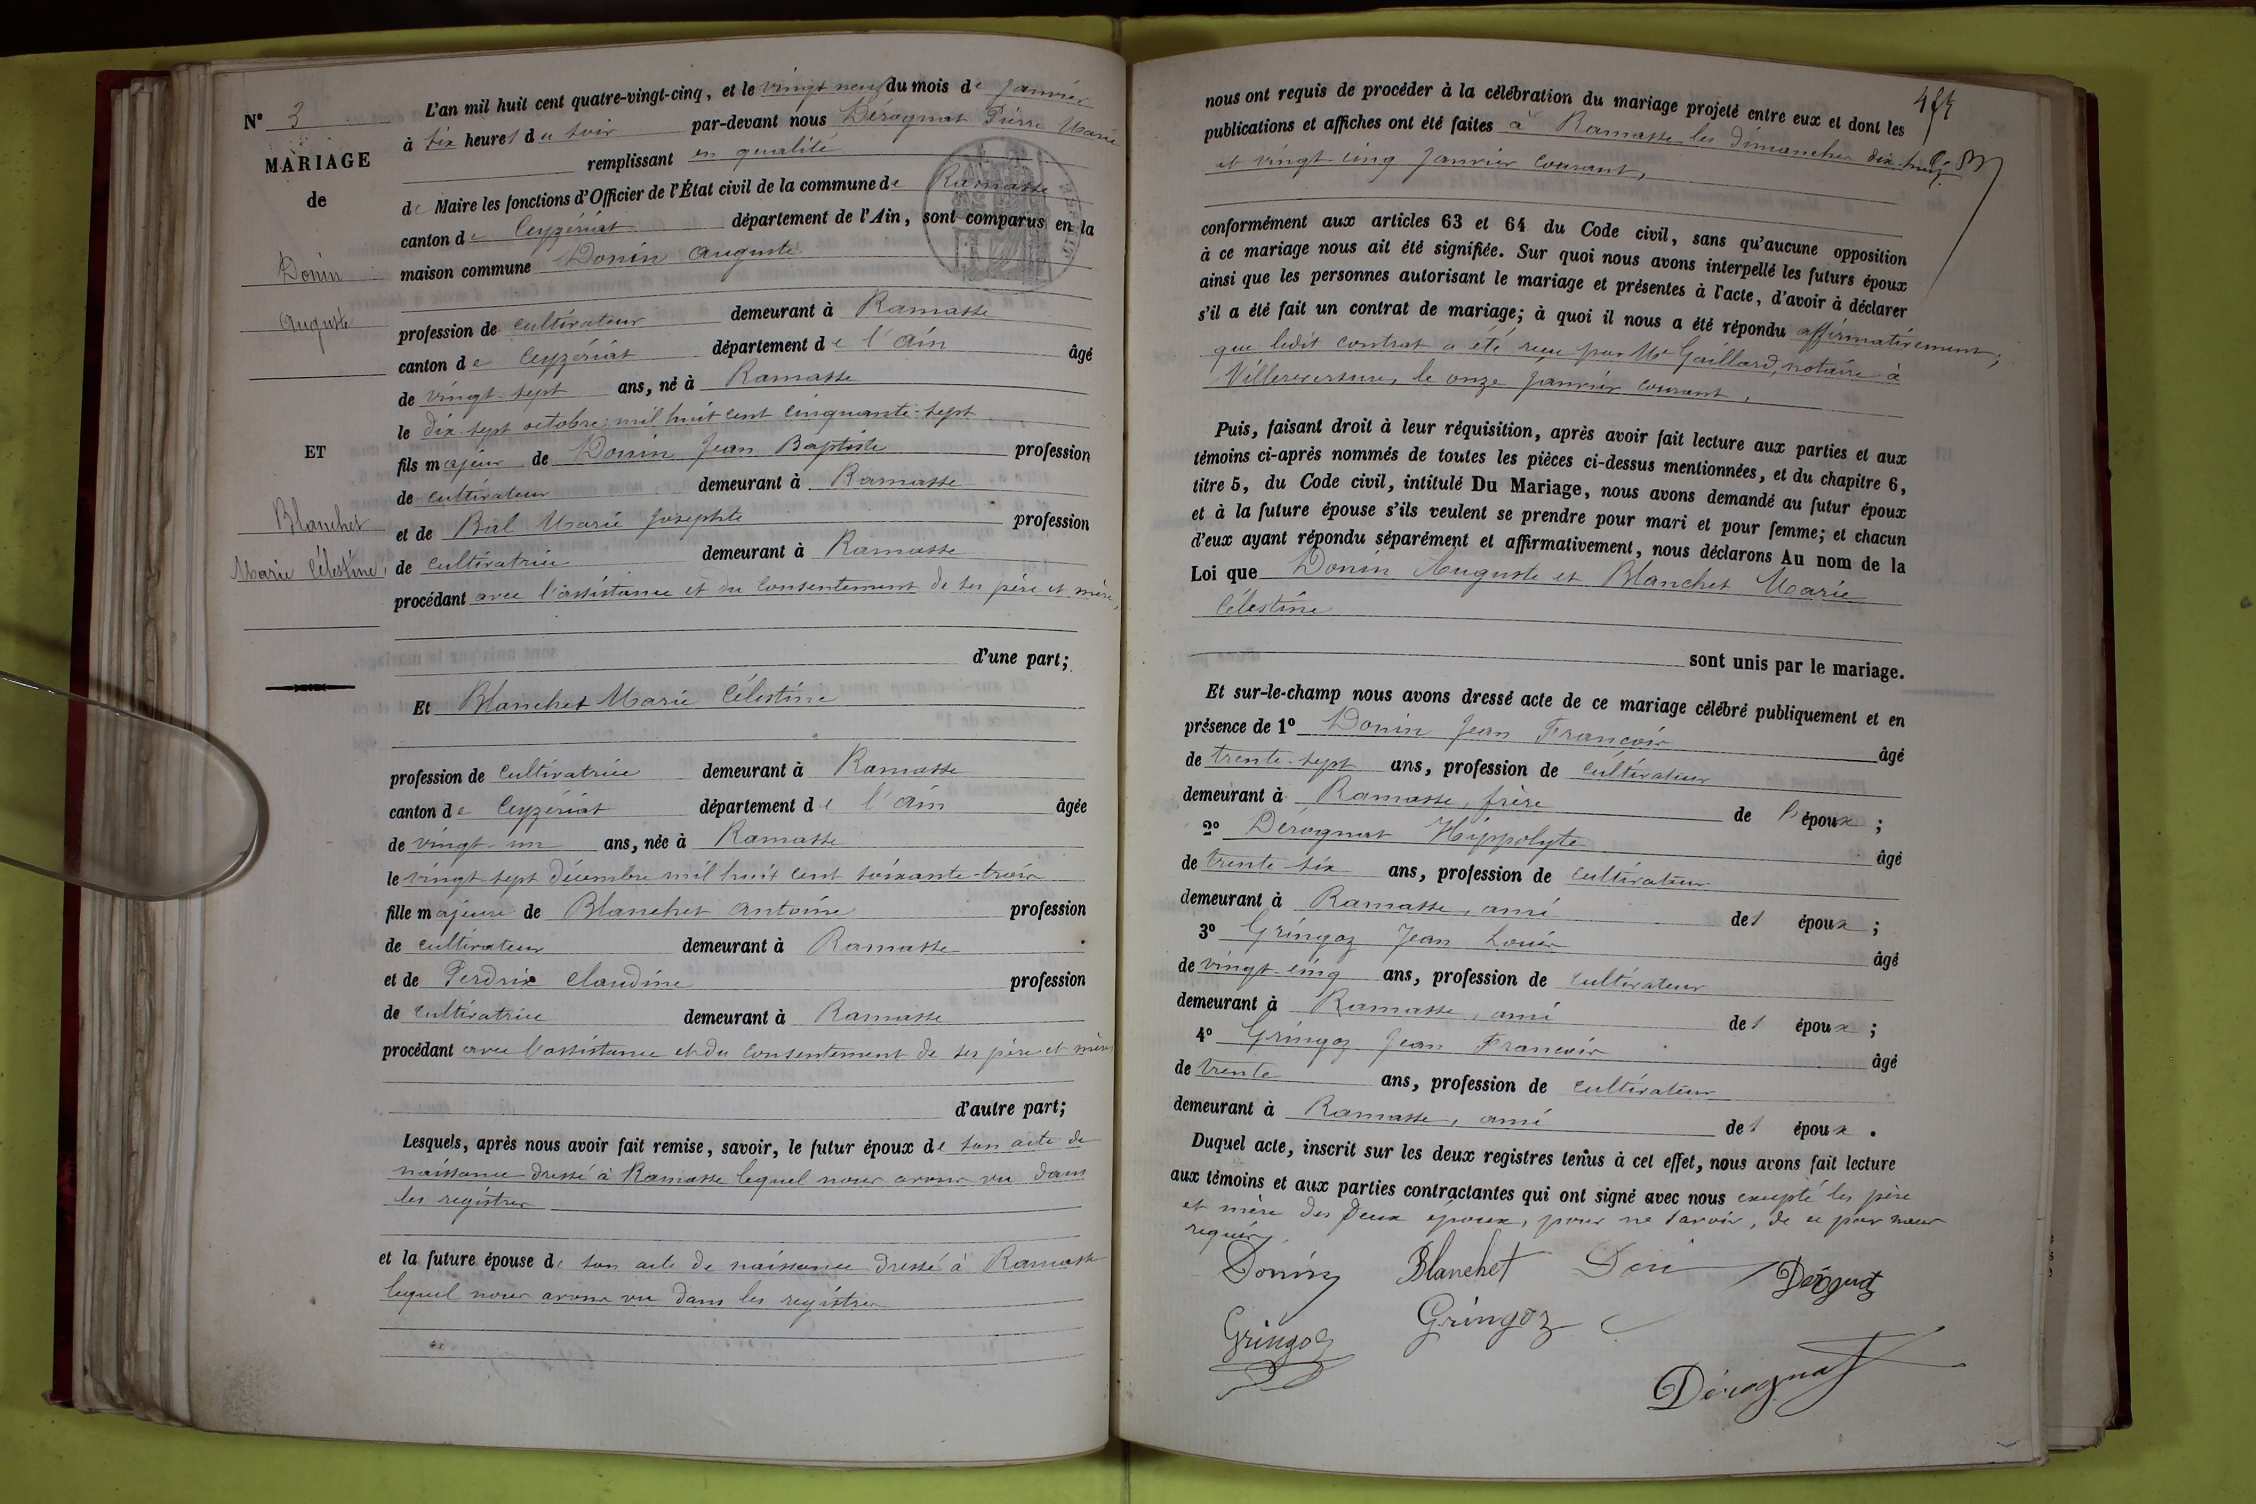 N° 3
MARIAGE
de
Donin
Auguste
ET
Blanchet
Marie Célestine,
L'an mil huit cent quatre-vingt-cinq, et le vingt neuf du mois de Janvier
à six heures du soir par-devant nous Dérognat Pierre Marie
remplissant en qualité
de Maire les fonctions d'Officier de l'État civil de la commune de Ramasse
canton de Ceyzériat département de l'Ain, sont comparus en la
maison commune Donin Auguste
profession de cultivateur demeurant à Ramasse
canton de Ceyzériat département de l'Ain âgé
de vingt-sept ans, né à Ramasse
le dix-sept octobre mil huit cent cinquante-sept
fils majeur de Donin Jean Baptiste profession
de cultivateur demeurant à Ramasse
et de Bial Marie Josephte profession
de cultivatrice demeurant à Ramasse
procédant avec l'assistance et du consentement de ses père et mère,
d'une part;
Et Blanchet Marie Célestine
profession de cultivatrice demeurant à Ramasse
canton de Ceyzériat département de l'Ain âgée
de vingt-un ans, née à Ramasse
le vingt-sept décembre mil huit cent soixante-trois
fille majeure de Blanchet Antoine profession
de cultivateur demeurant à Ramasse
et de Perdrix Claudine profession
de cultivatrice demeurant à Ramasse
procédant avec l'assistance et du consentement de ses père et mère
d'autre part;
Lesquels, après nous avoir fait remise, savoir, le futur époux de son acte de
naissance dressé à Ramasse lequel nous avons vu dans
les registres
et la future épouse de son acte de naissance dressé à Ramasse
lequel nous avons vu dans les registres
nous ont requis de procéder à la célébration du mariage projeté entre eux et dont les
publications et affiches ont été faites à Ramasse les dimanches dix-huit
et vingt-cinq Janvier courant,
conformément aux articles 63 et 64 du Code civil, sans qu'aucune opposition
à ce mariage nous ait été signifiée. Sur quoi nous avons interpellé les futurs époux
ainsi que les personnes autorisant le mariage et présentes à l'acte, d'avoir à déclarer
s'il a été fait un contrat de mariage; à quoi il nous a été répondu affirmativement;
que ledit contrat a été reçu par Me Gaillard, notaire à
Villereversure, le onze Janvier courant,
Puis, faisant droit à leur réquisition, après avoir fait lecture aux parties et aux
témoins ci-après nommés de toutes les pièces ci-dessus mentionnées, et du chapitre 6,
titre 5, du Code civil, intitulé Du Mariage, nous avons demandé au futur époux
et à la future épouse s'ils veulent se prendre pour mari et pour femme; et chacun
d'eux ayant répondu séparément et affirmativement, nous déclarons Au nom de la
Loi que Donin Auguste et Blanchet Marie
Célestine
sont unis par le mariage.
Et sur-le-champ nous avons dressé acte de ce mariage célébré publiquement et en
présence de 1° Donin Jean François âgé
de trente-sept ans, profession de cultivateur
demeurant à Ramasse, frère de l'époux;
2° Dérognat Hippolyte âgé
de trente-six ans, profession de cultivateur
demeurant à Ramasse, ami des époux;
3° Gringoz Jean Louis âgé
de vingt-cinq ans, profession de cultivateur
demeurant à Ramasse, ami des époux;
4° Gringoz Jean François âgé
de trente ans, profession de cultivateur
demeurant à Ramasse, ami des époux.
Duquel acte, inscrit sur les deux registres tenus à cet effet, nous avons fait lecture
aux témoins et aux parties contractantes qui ont signé avec nous excepté les père
et mère des deux époux, pour ne savoir, de ce par nous
requis.
Donin Blanchet Dérognat
Gringoz Gringoz
Dérognat